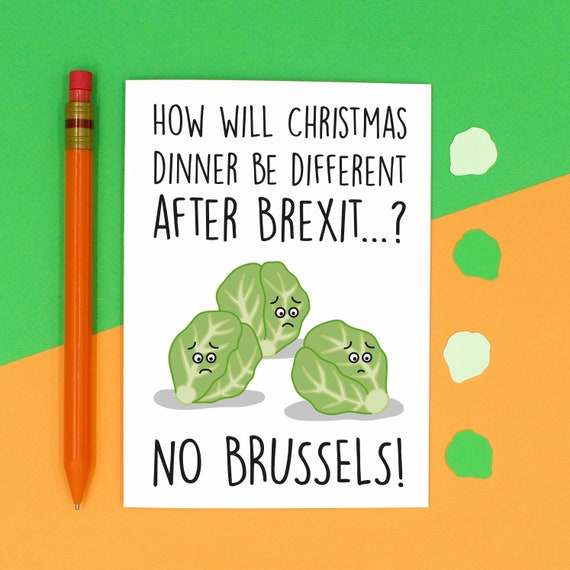 HOW WILL CHRISTMAS
DINNER BE DIFFERENT
AFTER BREXIT...?
NO BRUSSELS!